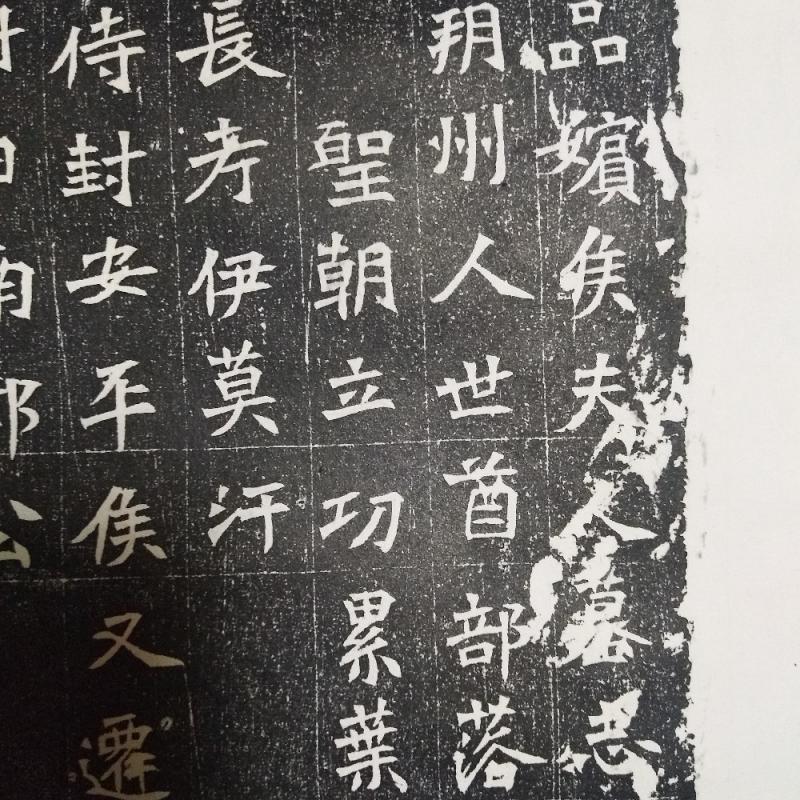 品嬪侯夫人墓志
朔州人世酋部落
聖朝立功累葉
長考伊莫汗
侍封安平侯又遷
南郡公